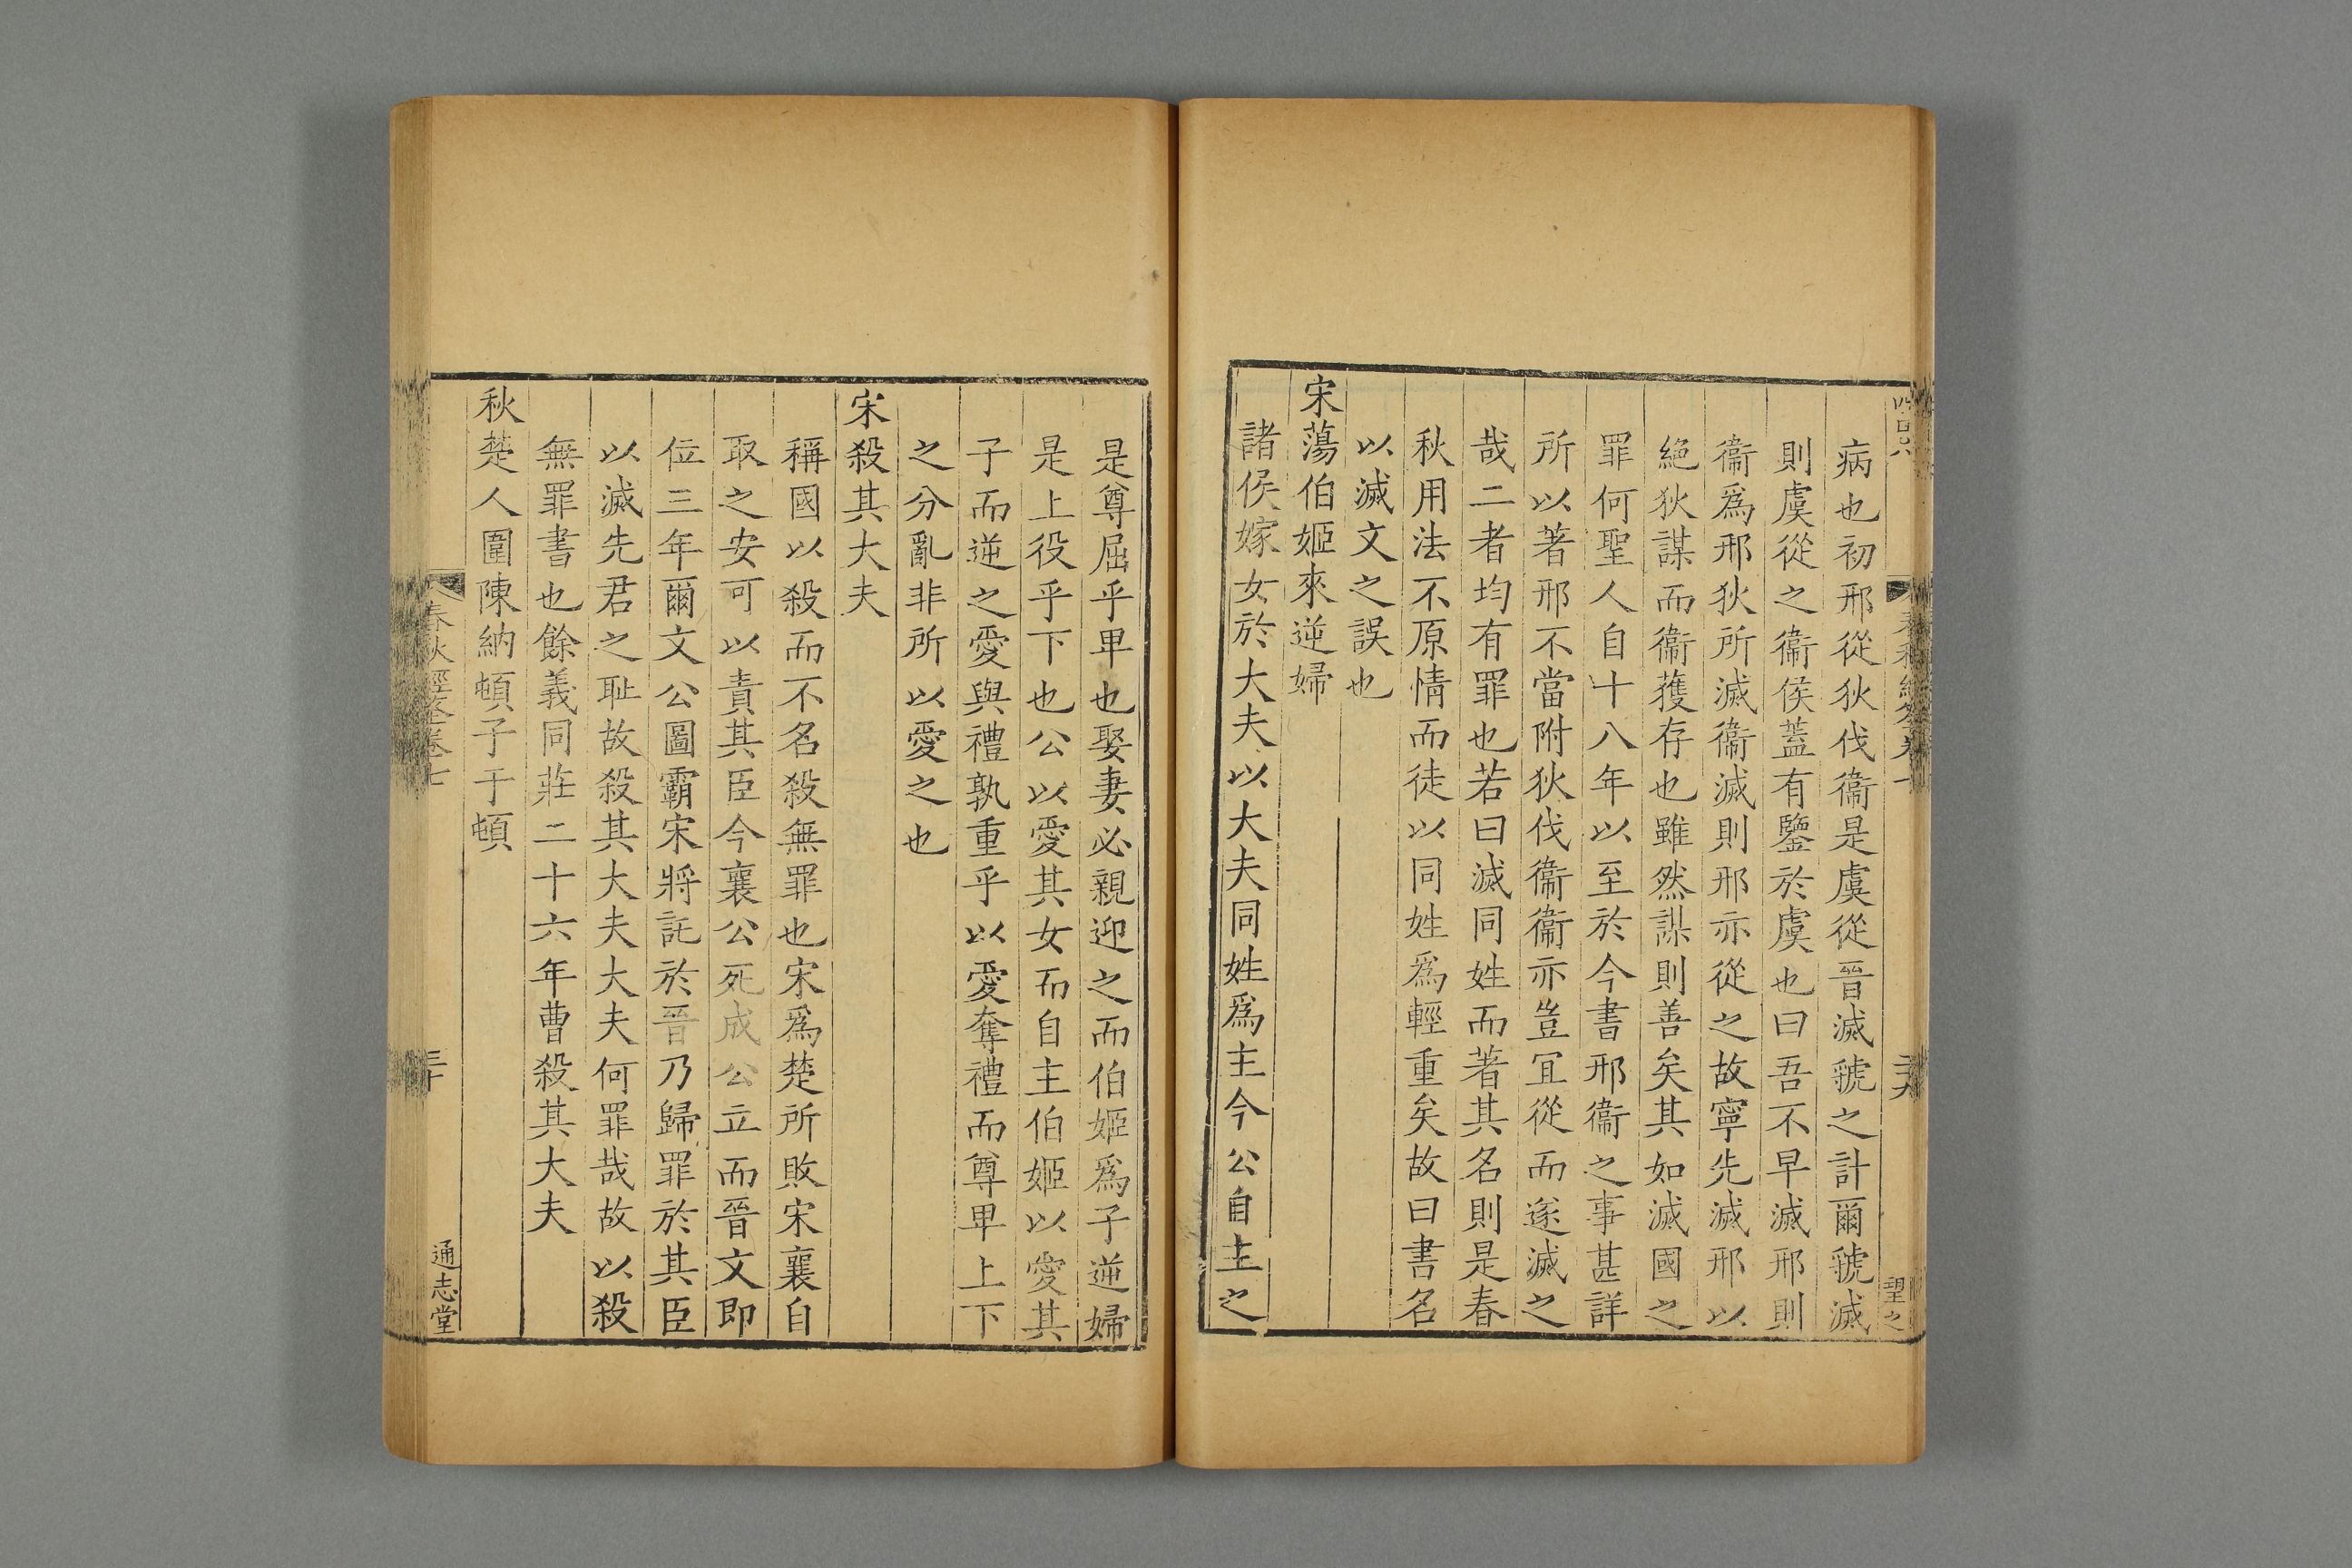 病也初邢從狄伐衞是虞從晉滅虢之計爾虢滅
則虞從之衞侯蓋有鑒於虞也曰吾不早滅邢則
衞爲邢狄所滅衞滅則邢亦從之故寧先滅邢以
絕狄謀而衞獲存也雖然謀則善矣其如滅國之
罪何聖人自十八年以至於今書邢衞之事甚詳
所以著邢不當附狄伐衞衞亦豈宜從而遂滅之
哉二者均有罪也若曰滅同姓而著其名則是春
秋用法不原情而徒以同姓爲輕重矣故曰書名
以滅文之誤也
宋蕩伯姬來逆婦
諸侯嫁女於大夫以大夫同姓爲主今公自主之
是尊屈乎卑也娶妻必親迎之而伯姬爲子逆婦
是上役乎下也公以愛其女而自主伯姬以愛其
子而逆之愛與禮孰重乎以愛奪禮而尊卑上下
之分亂非所以愛之也
宋殺其大夫
稱國以殺而不名殺無罪也宋爲楚所敗宋襄自
取之安可以責其臣今襄公死成公立而晉文即
位三年爾文公圖霸宋將託於晉乃歸罪於其臣
以滅先君之恥故殺其大夫大夫何罪哉故以殺
無罪書也餘義同莊二十六年曹殺其大夫
秋楚人圍陳納頓子于頓
春秋經筌卷七
三十
通志堂